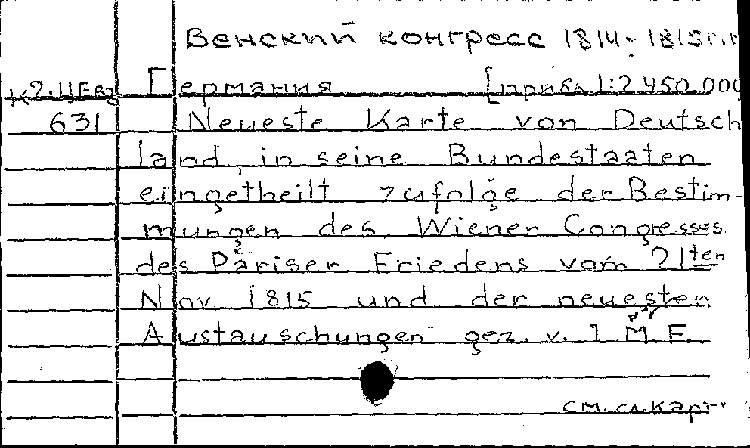 Венский конгресс 1814-1815 г.г
Германия [прибл. 1:2 450 000
631 Neueste Karte von Deutsch
land, in seine Bundestaaten
eingetheilt zufolge der Bestim-
mungen des Wiener Congresses
des Pariser Friedens vom 21ten
Nov. 1815 und der neuesten
Austauschungen gez. v. I. M. F.
см. сл. карт.